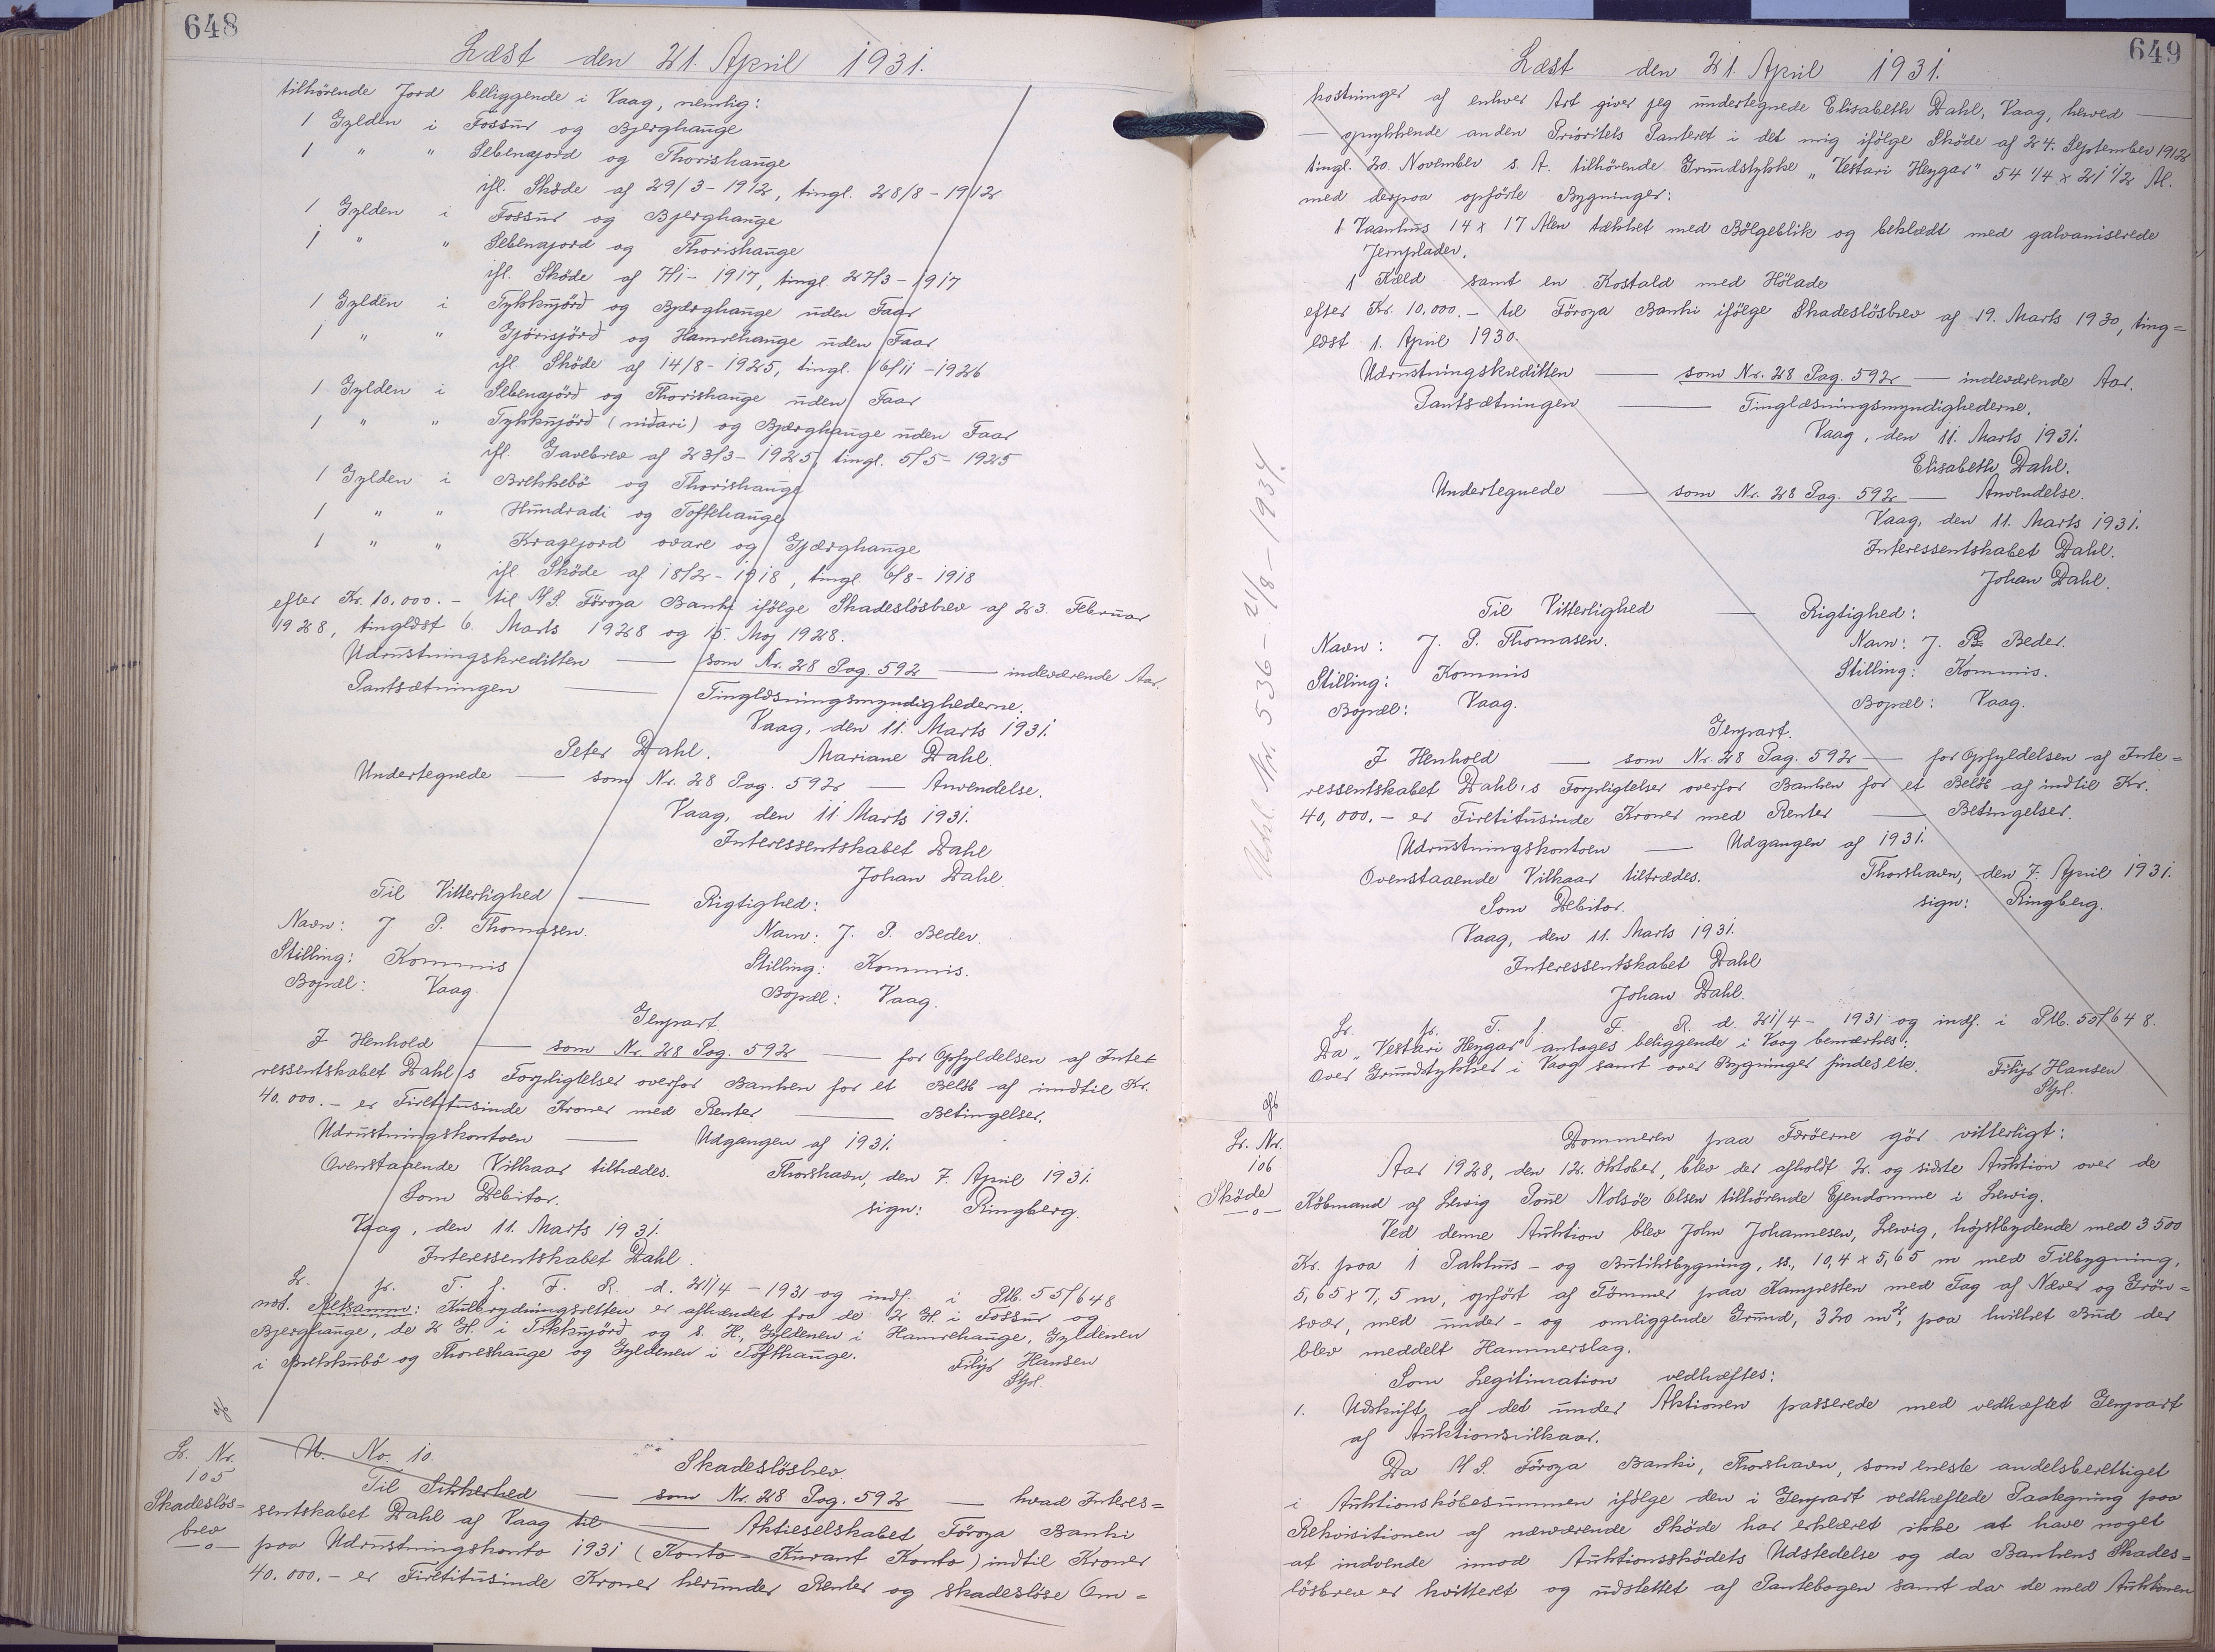 648
Læst den 21. April 1931.
tilhørende Jord beliggende i Vaag, nemlig:
1 Gylden i Fossur og Bjerghauge
1 " " Sebenajord og Thorishauge
ifl. Sköde af 29/3-1912, tingl. 28/8-1912
1 Gylden i Fossur og Bjerghauge
1 " " Sebenajord og Thorishauge
ifl. Sköde af 7/1-1917, tingl. 27/3-1917
1 Gylden i Tykkujörd og Bjærghauge uden Faar
1 " " Gjörisjörd og Hamrehauge uden Faar
ifl. Sköde af 14/8-1925, tingl. 16/11-1926
1 Gylden i Sebenajörd og Thorishauge uden Faar
1 " " Tykkujörd (nidari) og Bjærghauge uden Faar
ifl. Gavebrev af 23/3-1925, tingl. 5/5-1925
1 Gylden i Brekkebö og Thorishauge
1 " " Hundradi og Toftehauge
1 " " Kragejord ovare og Gjærghauge
ifl. Sköde af 18/2-1918, tingl. 6/8-1918
efter Kr. 10.000.- til A/S. Föroya Banki ifölge Skadeslösbrev af 23. Februar
1928, tinglæst 6. Marts 1928 og 15. Maj 1928.
Udrustningskreditten — som Nr. 28 Pag. 592 — indeværende Aar.
Pantsætningen — Tinglæsningsmyndighederne.
Vaag, den 11. Marts 1931.
Peter Dahl. Mariane Dahl.
Undertegnede — som Nr. 28 Pag. 592 — Anvendelse.
Vaag, den 11. Marts 1931.
Interessentskabet Dahl
Johan Dahl.
Til Vitterlighed — Rigtighed:
Navn: J. P. Thomasen. Navn: J. P. Beder.
Stilling: Kommis Stilling: Kommis.
Bopæl: Vaag. Bopæl: Vaag.
Genpart.
I Henhold — som Nr. 28 Pag. 592 — for Opfyldelsen af Inte-
ressentskabet Dahl's Forpligtelser overfor Banken for et Belöb af indtil Kr.
40.000.- er Firetitusinde Kroner med Renter — Betingelser.
Udrustningskontoen — Udgangen af 1931.
Ovenstaaende Vilkaar tiltrædes. Thorshavn, den 7. April 1931.
Som Debitor. sign: Ringberg.
Vaag, den 11. Marts 1931.
Interessentskabet Dahl.
Lr. pr. T. f. F. R. d. 21/4-1931 og indf. i Ptb. 55/648
not. Retsanm: Kulbrydningsretten er afhændet fra de 2 G. i Fossur og
Bjerghauge, de 2 G. i Tykkujörd og s. H., Gyldenen i Hamrehauge, Gyldenen
i Brekkubö og Thoreshauge og Gyldenen i Tofthauge. Filip Hansen
Stpl.
Lr. Nr. 105
Skadeslös=
brev
U. No. 10. Skadeslösbrev.
Til Sikkerhed — som Nr. 28 Pag. 592 — hvad Interes=
sentskabet Dahl af Vaag til — Aktieselskabet Föroya Banki
paa Udrustningskonto 1931 (Konto-Kurant Konto) indtil Kroner
40.000.- er Firetitusinde Kroner herunder Renter og skadeslöse Om=
649
Læst den 21. April 1931.
kostninger af enhver Art giver jeg undertegnede Elisabeth Dahl, Vaag, herved —
— oprykkende anden Prioritets Panteret i det mig ifölge Sköde af 24. September 1912
tingl. 20. November s. A. tilhörende Grundstykke "Vestari Heygar" 54 1/4 x 21 1/2 Al.
med derpaa opförte Bygninger:
1 Vaanhus 14 x 17 Alen tækket med Bölgeblik og beklædt med galvaniserede
Jernplader.
1 Kæld samt en Kostald med Hölade
efter Kr. 10.000.- til Föroya Banki ifölge Skadeslösbrev af 19. Marts 1930, ting=
læst 1. April 1930.
Udrustningskreditten — som Nr. 28 Pag. 592 — indeværende Aar.
Pantsætningen — Tinglæsningsmyndighederne.
Vaag, den 11. Marts 1931.
Elisabeth Dahl.
Undertegnede — som Nr. 28 Pag. 592 — Anvendelse.
Vaag, den 11. Marts 1931.
Interessentskabet Dahl.
Johan Dahl.
Til Vitterlighed — Rigtighed:
Navn: J. P. Thomasen. Navn: J. P. Beder.
Stilling: Kommis Stilling: Kommis.
Bopæl: Vaag. Bopæl: Vaag.
Genpart.
I Henhold — som Nr. 28 Pag. 592 — for Opfyldelsen af Inte=
ressentskabet Dahl's Forpligtelser overfor Banken for et Belöb af indtil Kr.
40,000.- er Firetitusinde Kroner med Renter — Betingelser.
Udrustningskontoen — Udgangen af 1931.
Ovenstaaende Vilkaar tiltrædes. Thorshavn, den 7. April 1931.
Som Debitor. sign: Ringberg.
Vaag, den 11. Marts 1931.
Interessentskabet Dahl
Johan Dahl.
Lr. pr. T. f. F. R. d. 21/4-1931 og indf. i Ptb. 55/648.
Da "Vestari Heygar" antages beliggende i Vaag bemærkes:
Over Grundstykker i Vaag samt over Bygninger findes etc. Filip Hansen
Stpl.
Udsl. Nr. 536 - 21/8-1934.
Lr. Nr.
106
Sköde
Dommeren paa Færöerne gör vitterligt:
Aar 1928, den 12. Oktober, blev der afholdt 2. og sidste Auktion over de
Köbmand af Lervig Poul Nolsöe Olsen tilhörende Ejendomme i Lervig.
Ved denne Auktion blev John Johannesen, Lervig, höjstbydende med 3500
Kr. paa 1 Pakhus- og Butiksbygning, st., 10,4 x 5,65 m med Tilbygning,
5,65 x 7,5 m, opfört af Tömmer paa Kampesten med Tag af Næver og Grön=
svær, med under- og omliggende Grund, 320 m², paa hvilket Bud der
blev meddelt Hammerslag.
Som Legitimation vedhæftes:
1. Udskrift af det under Aktionen passerede med vedhæftet Genpart
af Auktionsvilkaar.
Da A/S. Föroya Banki, Thorshavn, som eneste andelsberettiget
i Auktionsköbesummen ifölge den i Genpart vedhæftede Paategning paa
Rekvisitionen af nærværende Sköde har erklæret ikke at have noget
at indvende imod Auktionssködets Udstedelse og da Bankens Skades=
lösbrev er kvitteret og udslettet af Pantebogen samt da de med Auktionen